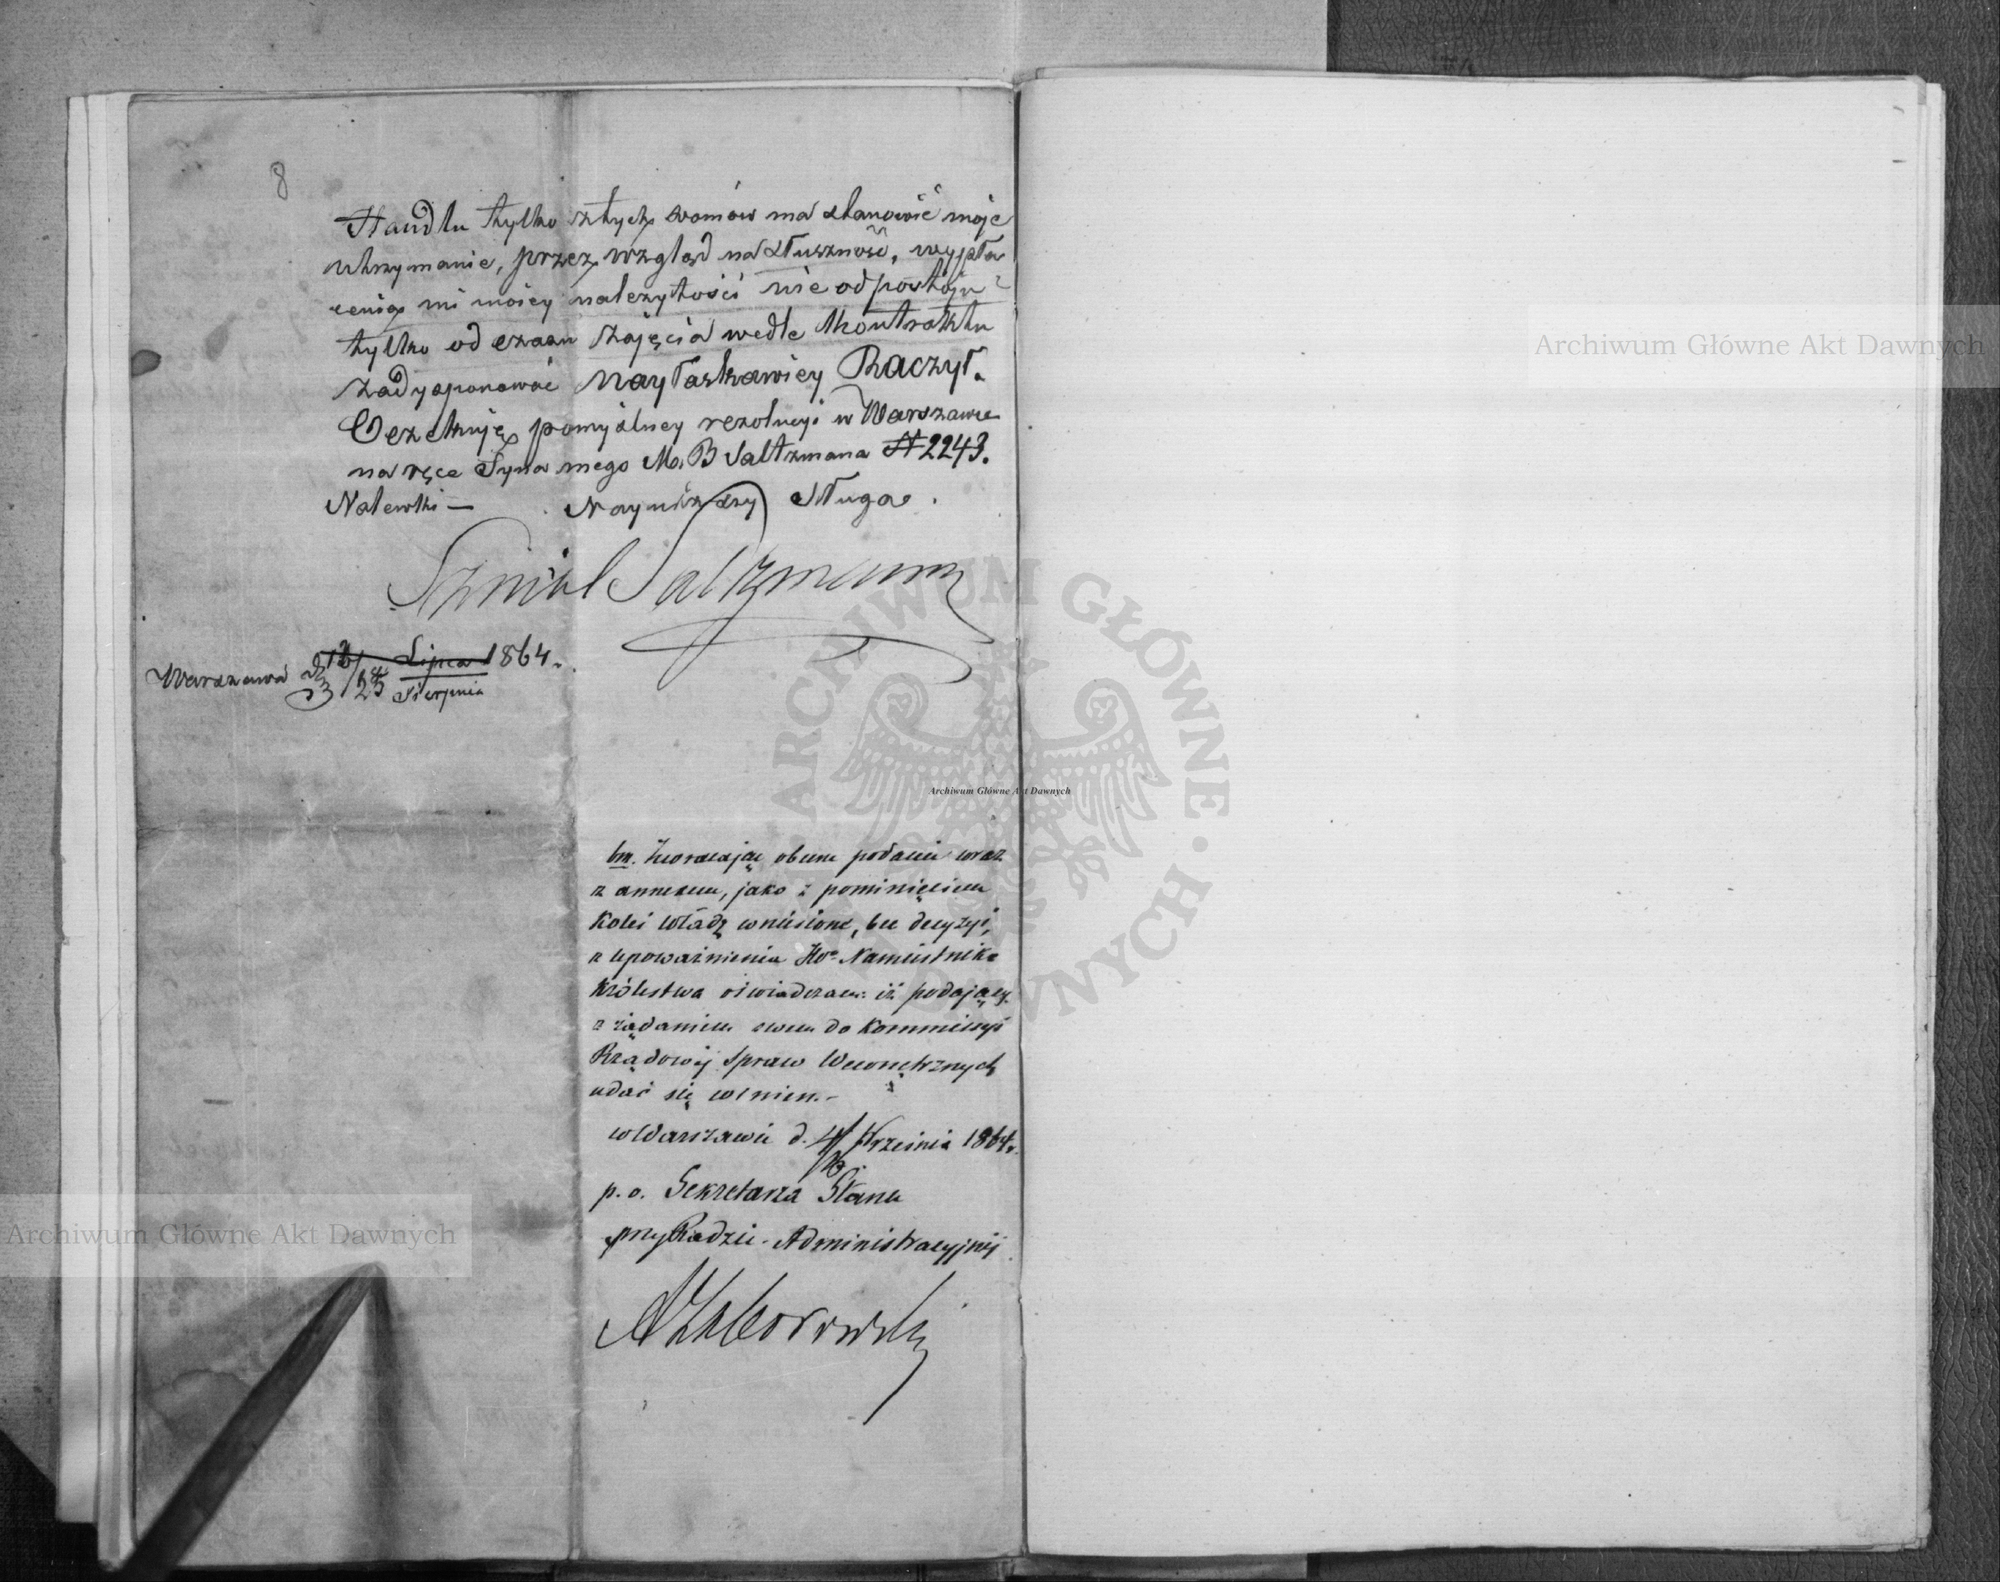 8
Handlu tylko z tych domów ma stanowić moje
utrzymanie, przez wzgląd na słuszność, wypła
cenie mi mojey należytości nie od postoju
tylko od czasu zajęcia wedle Kontraktu
zadysponować Nayłaskawiey Raczył.
Oczekuję pomyślney rezolucyi w Warszawie
na ręce Syna mego M. B Saltzmana N 2243.
Nalewki — Nayniższy Sługa.
Szmul Saltzmann
Warszawa d 13/25 Lipca 1864.
Sierpnia
Zwracając obecne podanie wraz
z annexem, jako z pominięciem
Kolei Władz wniesione, bez decyzyi,
z upoważnienia Hr. Namiestnika
Królestwa oświadczam: iż podający
z żądaniem swem do Kommissyi
Rządowéj Spraw Wewnętrznych
udać się winien.-
w Warszawie d. 4/16 Września 1864 r.
p. o. Sekretarza Stanu
przy Radzie Administracyjnéj
A Zaborowski
Archiwum Główne Akt Dawnych
Archiwum Główne Akt Dawnych
Archiwum Główne Akt Dawnych